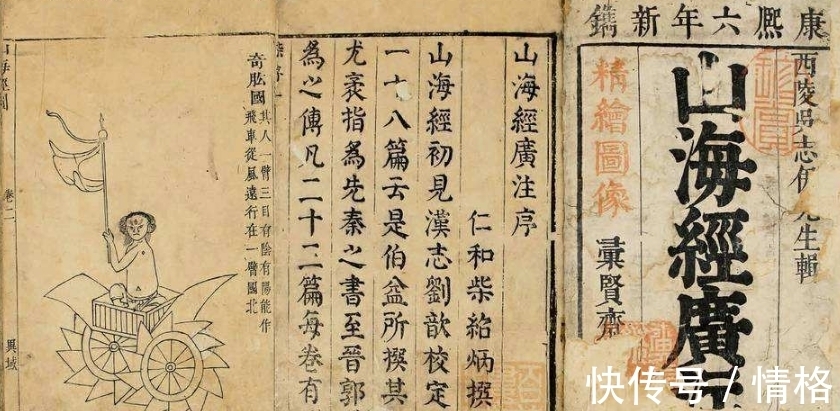 康熙六年新鐫
西陵吳志伊先生輯
山海經廣
精繪圖像
彙賢齋
山海經廣注序
仁和柴紹炳撰
山海經初見漢志劉歆校定
一十八篇云是伯益所撰其
尤袤指為先秦之書至晉郭
為之傳凡二十二篇每卷有
奇肱國
其人一臂三目有陰有陽能作
飛車從風遠行在一臂國北
山海經圖
卷二
異域
快传号 / 情格